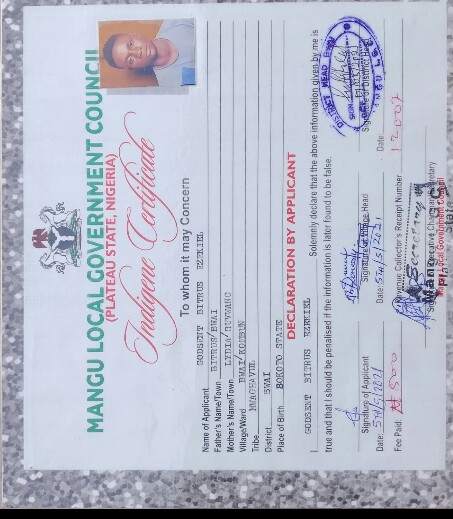 MANGU LOCAL GOVERNMENT COUNCIL
(PLATEAU STATE, NIGERIA)
Indigene Certificate
To whom it may Concern
Name of Applicant GODSENT BITRUS EZEKIEL
Father's Name/Town BITRUS/BWAI
Mother's Name/Town LYDIA/
Village/Ward BWAI/KOMBUN
Tribe MWAGHAVUL
District BWAI
Place of Birth SOKOTO STATE
DECLARATION BY APPLICANT
I GODSENT BITRUS EZEKIEL Solemnly declare that the above information given by me is
true and that I should be penalised if the information is later found to be false.
Signature of Applicant
Signature of Village Head
Signature of District Head
DISTRICT HEAD BWAI
SIGN
MANGU L.G.C
Date: 5th/5/2021
Date: 5th/5/2021
Date:
Fee Paid: ₦500
Revenue Collector's Receipt Number 12007
Secretary
Mangu Local Government Council